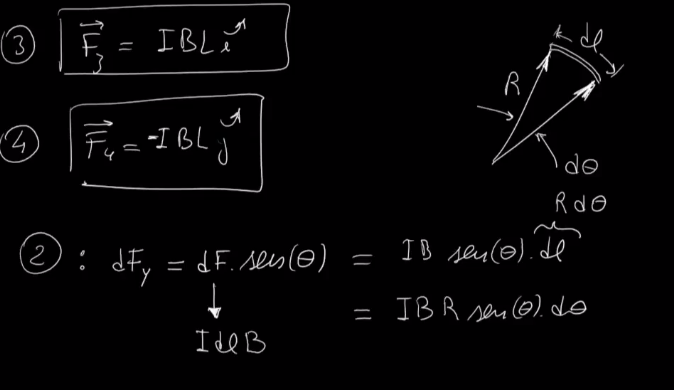 ③ F⃗₃ = IBL î
④ F⃗₄ = -IBL ĵ
dl
R
dθ
R dθ
② : dF_y = dF. sen(θ) = IB sen(θ). dl
= IBR sen(θ). dθ
I dl B